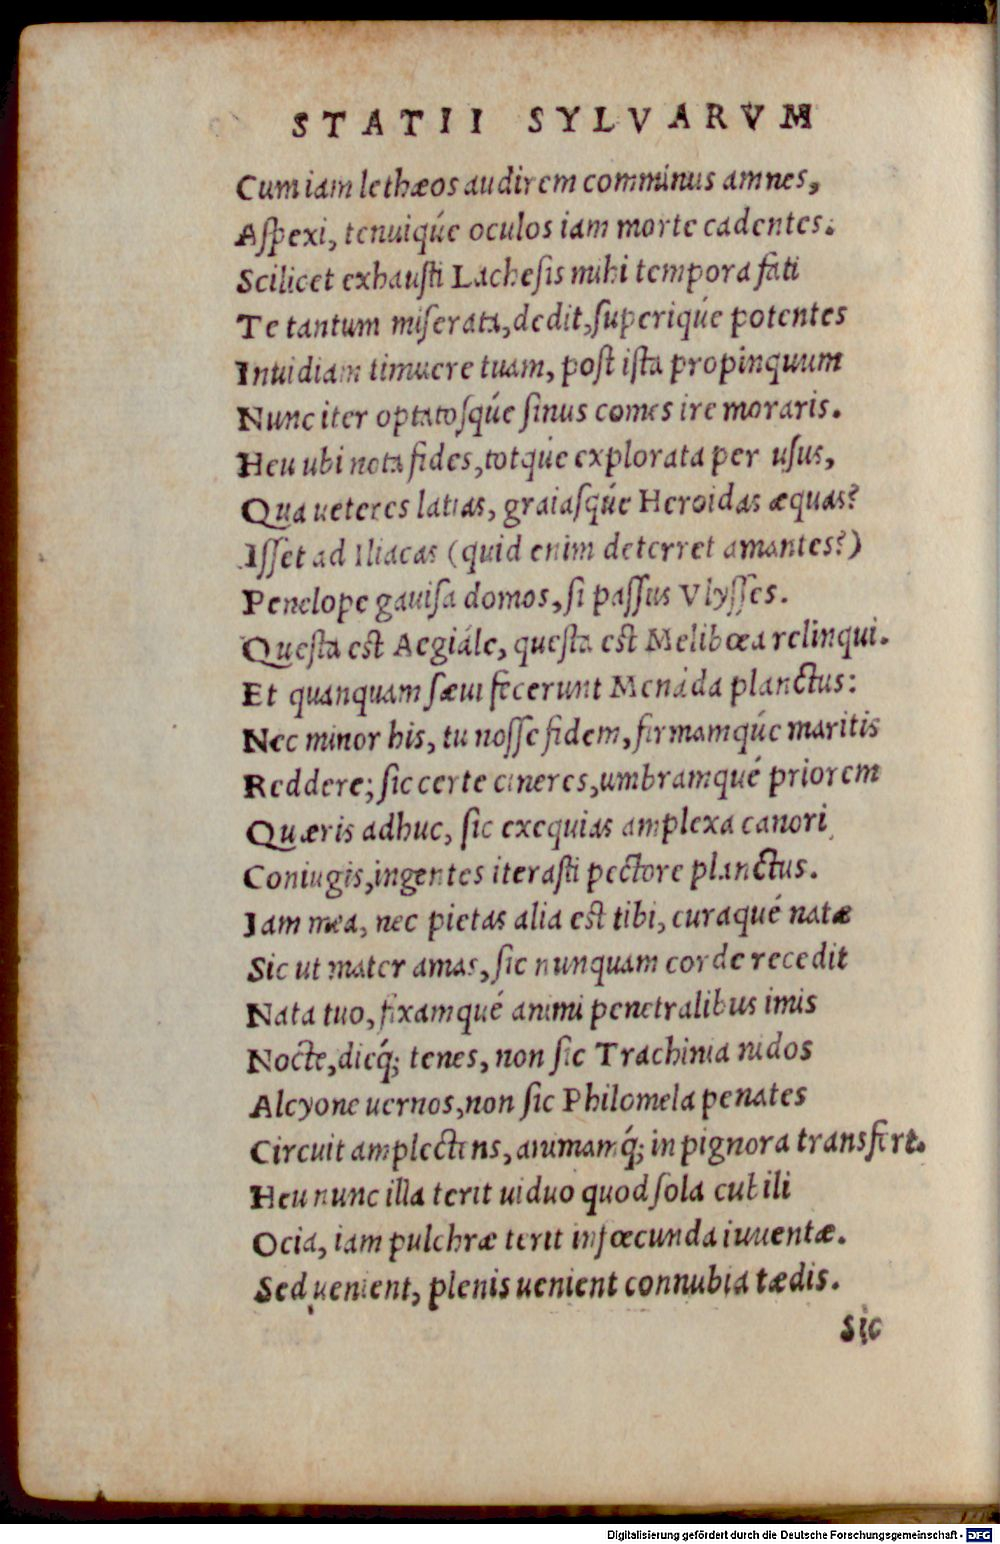 STATII SYLVARVM
Cum iam lethæos audirem comminus amnes,
Aſpexi, tenuiqúe oculos iam morte cadentes.
Scilicet exhauſti Lacheſis mihi tempora fati
Te tantum miſerata, dedit, ſuperiqúe potentes
Inuidiam timuere tuam, poſt iſta propinquum
Nunc iter optatoſqúe ſinus comes ire moraris.
Heu ubi nota fides, totqúe explorata per uſus,
Qua ueteres latias, graiaſqúe Heroidas æquas?
Iſſet ad Iliacas (quid enim deterret amantes?)
Penelope gauiſa domos, ſi paſſus Vlyſſes.
Queſta est Aegiále, queſta est Melibœa relinqui.
Et quanquam ſæui fecerunt Menáda planctus:
Nec minor his, tu noſſe fidem, firmamqúe maritis
Reddere; ſic certe cineres, umbramqué priorem
Quæris adhuc, ſic exequias amplexa canori
Coniugis, ingentes iteraſti pectore planctus.
Iam mea, nec pietas alia est tibi, curaqué natæ
Sic ut mater amas, ſic nunquam corde recedit
Nata tuo, fixamqué animi penetralibus imis
Nocte, dieq́; tenes, non ſic Trachinia nidos
Alcyone uernos, non ſic Philomela penates
Circuit amplectens, animamq́; in pignora transfert.
Heu nunc illa terit uiduo quod ſola cubili
Ocia, iam pulchræ terit infœcunda iuuentæ.
Sed uenient, plenis uenient connubia tædis.
Sic
Digitalisierung gefördert durch die Deutsche Forschungsgemeinschaft - DFG